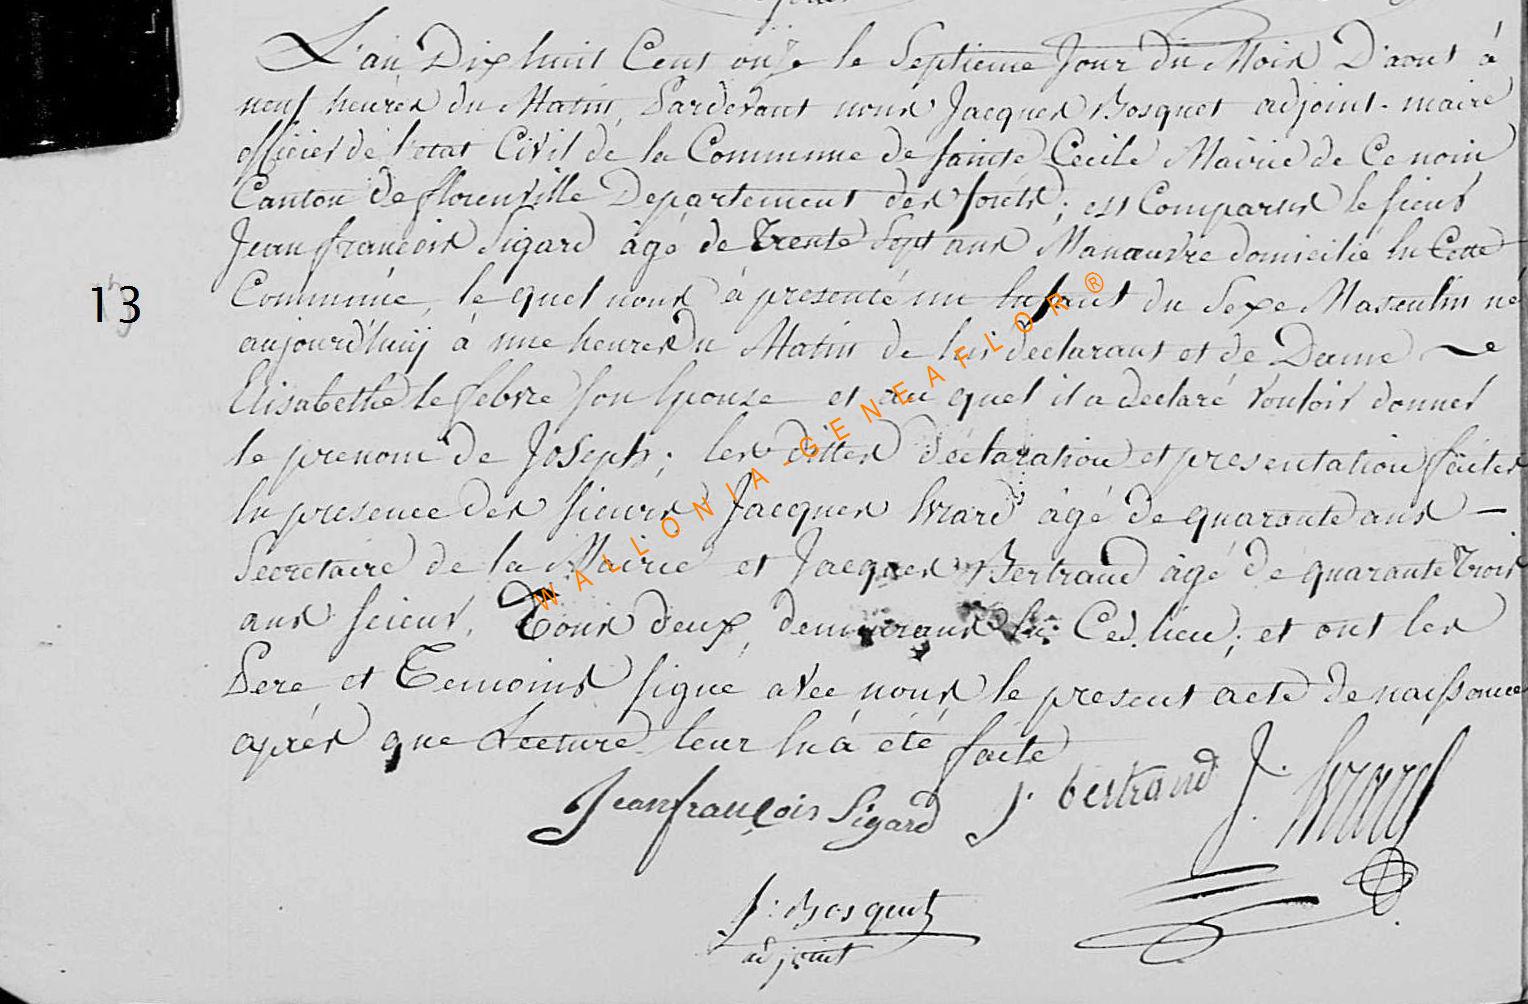 L'an Dix huit Cent onze le Septieme Jour du Mois D'aout à
neuf heures du Matin, Pardevant nous Jacques Bosquet adjoint-maire
officier de l'etat Civil de la Commune de sainte Cecile Mairie de Ce nom
Canton de florenville Departement des forêts; est Comparus le sieur
Jean françois Sigard âgé de Trente Sept ans Manœuvre domicilié En Cette
13
Commune, le quel nous à presenté un Enfant du Sexe Masculin né
aujourd'huij à une heure du Matin de lui declarant et de Dame
Elisabethe le febvre son Epouse et au quel il a declaré Vouloir donner
le prenom de Joseph; les dittes declaration et presentation faites
En presence des sieurs Jacques Evrard âgé de quarante ans —
Secretaire de la Mairie et Jacques Bertrand âgé de quarante Trois
ans scieur, Tous deux demeurans En Ces lieu; et ont les
Pere et Temoins signé avec nous le present acte de naissance
après que Lecture leur En à été faite
Jean françois Sigard J. bertrand J. Evrard
J: Bosquet
adjoint
WALLONIA-GENEAFLOR®